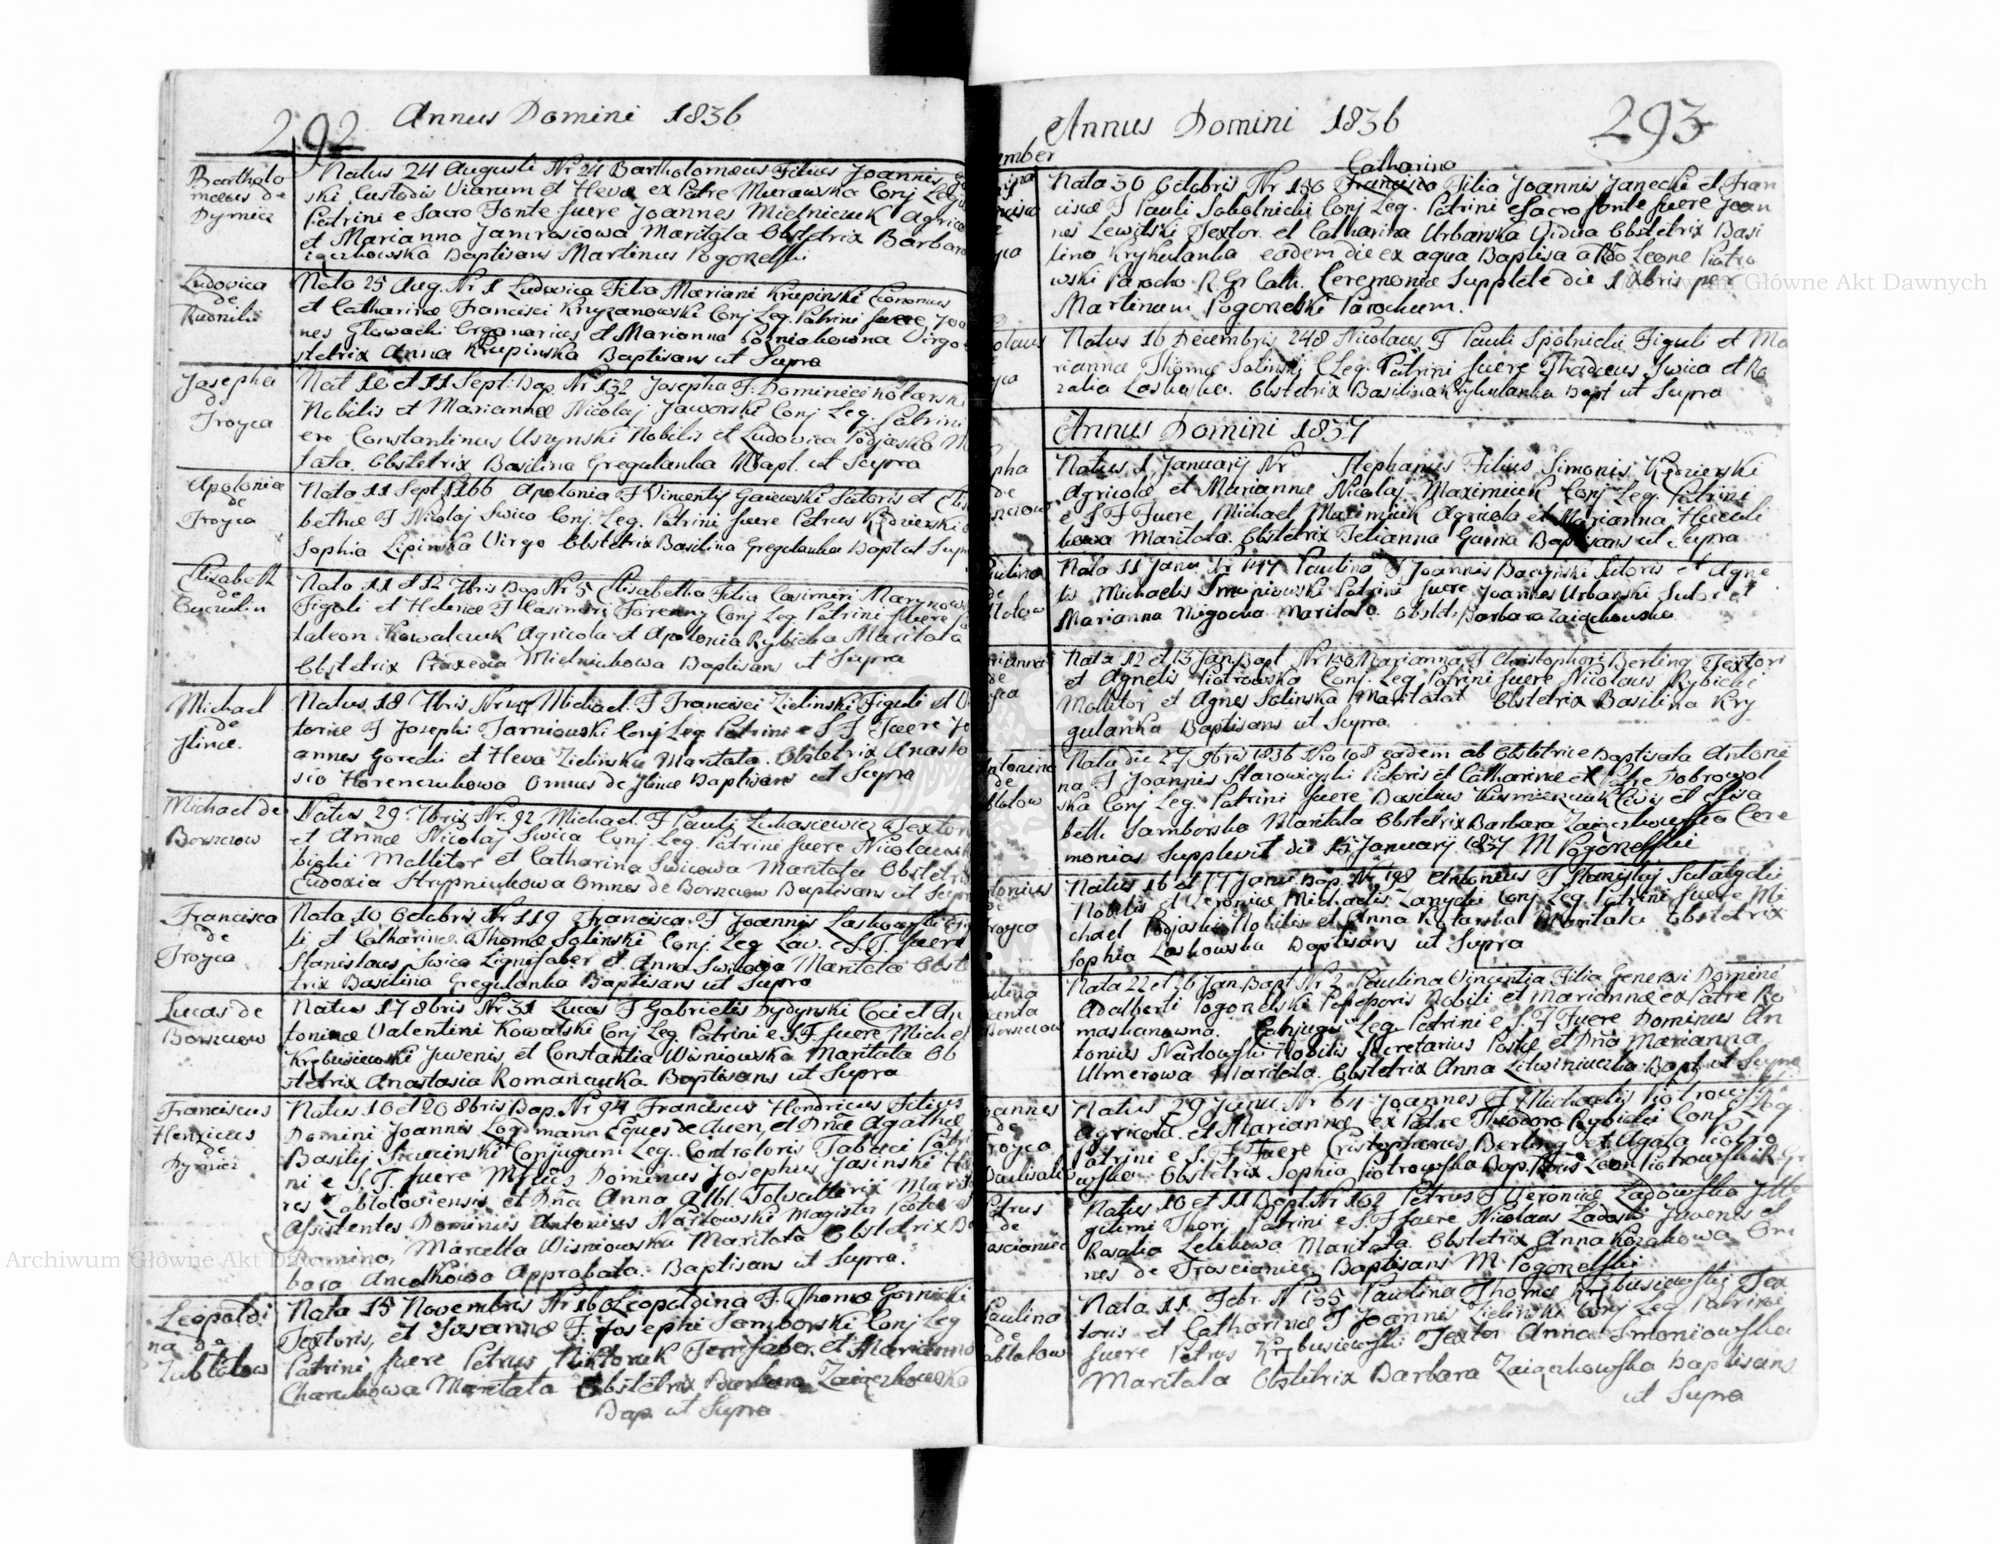 292 Annus Domini 1836
Bartholo
maeus de
Dymicz
Natus 24 Augusti Nr 24 Bartholomaeus Filius Joannis
ski Custodis Viarum et Hevae ex Patre Murawska Conj Leg
Patrini e Sacro Fonte fuere Joannes Mielniczuk Agrico
et Marianna Jamrosiowa Maritata Obstetrix Barbara
Baptisans Martinus Pogonelski
Ludovica
de
Rudniki
Nata 25 Aug. Nr 1 Ludovica Filia Mariani Krupinski Economus
et Catharinae Francisci Kryzanowski Conj Leg. Patrini fuere Joa
nes Glowacki Organarius et Marianna Pozniakowna Virgo
stetrix Anna Krupinska Baptisans ut Supra
Josepha
de
Troyca
Nat 10 et 11 Sept: Bap. Nr 132 Josepha F. Dominici Kolarski
Nobilis et Mariannae Nicolaj Jaworski Conj Leg. Patrini
ere Constantinus Uszynski Nobilis et Ludovica Podjaska M
tata. Obstetrix Basilina Gregulanka Bapt. ut Supra
Apolonia
de
Troyca
Nata 11 Sept. 166 Apolonia F Vincentij Gaiewski Sutoris et Elisa
bethae F Nicolaj Swica Conj. Leg. Patrini fuere Petrus Kędzierski
Sophia Lipinska Virgo Obstetrix Basilina Gregulanka Bapt ut Supra
Elisabeth
de
Nata 11 et 12 7bris Bap Nr 5 Elisabetha Filia Casimiri Marynow
Figuli et Helenae F Casimiri Conj Leg Patrini fuere
taleon Kowalczuk Agricola et Apolonia Rybicka Maritata
Obstetrix Praxeda Mielnikowa Baptisans ut Supra
Michael
de
Ilince.
Natus 18 7bris Nr Michael F Francisci Zielinski Figuli et Vi
toriae F Josephi Tarniowski Conj Leg. Patrini e S F Fuere Jo
annes Gorecki et Heva Zielinska Maritata. Obstetrix Anasta
sia Horenczukowa Omnes de Ilince Baptisans ut Supra
Michael de
Borszczow
Natus 29 7bris Nr. 92 Michael F Pauli Lukasiewicz Textor
et Annae Nicolaj Swica Conj. Leg. Patrini fuere Nicolaus
bicki Mollitor et Catharina Swicowa Maritata Obstetrix
Eudoxia Strypniukowa Omnes de Borszczow Baptisans ut Supra
Francisca
de
Troyca
Nata 10 Octobris Nr 119 Francisca F Joannis Laskowski
li et Catharinae Thomae Solinski Conj. Leg. Lav. e S. F. fuere
Stanislaus Swica Lignifaber et Anna Maritata Obst
trix Basilina Gregulanka Baptisans ut Supra
Lucas de
Borszczow
Natus 17 8bris Nr 31 Lucas F Gabrielis Dydynski Coci et An
toninae Valentini Kowalski Conj. Leg. Patrini e S F. fuere Michael
Krębusiewski Juvenis et Constantia Wisniowska Maritata Ob
stetrix Anastasia Romanczuka Baptisans ut Supra
Franciscus
Henricus
de
Dymicz
Natus 10 et 20 8bris Bap. Nr 94 Franciscus Hendricus Filius
Domini Joannis Logdmann Eques de Auen, et Dnae Agathae
Basilij Conjugum Leg. Controloris Tabaci Patri
ni e S. F. fuere Dominus Josephus Jasinski
res Zablotoviensis et Dna Anna Albl. Mari
Assistentes Dominus Antonius Narlowski Magister Postae et
Domina, Marcella Wisniowska Maritata Obstetrix Ba
bara Approbata. Baptisans ut Supra.
Leopoldi
na de
Zablotow
Nata 15 Novembris Nr 160 Leopoldina F. Thomae Gornicki
Textoris, et Susannae F. Josephi Samborski Conj Leg
Patrini fuere Petrus Wiktoruk Ferrifaber, et Marianna
Charukowa Maritata Obstetrix Barbara Zaiączkowska
Bap. ut Supra
Annus Domini 1836 293
Catharina
Nata 30 Octobris Nr 150 Francisca Filia Joannis Janecki et Fran
ciscae F Pauli Sokolnicki Conj Leg. Patrini e Sacro fonte fuere Joan
nes Lewitski Textor et Catharina Urbanska Vidua Obstetrix Basi
lina Krykulanka eadem die ex aqua Baptisa a Rdo Leone Piotro
wski Parocho R. Gr Cath. Ceremoniae Suppletae die 1 Xbris per
Martinum Pogonelski Parochum.
Natus 16 Decembris 248 Nicolaus F Pauli Spolnicki Figuli et Ma
riannae Thomae Solinski C Leg. Patrini fuere Thadaeus Swica et Ro
zalia Laskaka. Obstetrix Basilina Krykulanka Bapt ut Supra
Annus Domini 1837
Natus 1 Januarij Nr Stephanus Filius Simonis Kędzierski
Agricolae et Mariannae Nicolaj Maximiuk Conj Leg. Patrini
e S F Fuere Michael Maximiuk Agricola et Marianna
kowa Maritata. Obstetrix Julianna Baptisans ut Supra
Paulina
de
Nata 11 Janu Nr 147 Paulina F Joannis Baczynski Sutoris et Agne
tis Michaelis Patrini fuere Joannes Urbanski Sutor et
Marianna Nigocka Maritata Obstet: Barbara Zaiączkowska
Nata 12 et 13 Jan Bapt Nr 150 Marianna F Christophori Berling Textori
et Agnetis Piotrowska Conj. Leg. Patrini fuere Nicolaus Rybicki
Mollitor et Agnes Solinska Maritatat Obstetrix Basilina Kry
gulanka Baptisans ut Supra
Antonina
de
Nata die 27 9bris 1836 Nro 108 eadem ab Obstetrice Baptisata Antoni
na F Joannis Starowieyski Pictoris et Catharinae ex Patre Dobrowol
ska Conj Leg. Patrini fuere Basilius Kusmierczuk Civis et Elisa
beth Samborska Maritata Obstetrix Barbara Zaiączkowska Cere
monias Supplevit die 15 Januarij 1837 M Pogonelski
Natus 16 et 17 Janu Bap. Nr 198 Antonius F Stanislaj Salatycki
Nobilis et Veronicae Michaelis Zarycki Conj Leg. Patrini fuere Mi
chael Podjaski Nobilis et Anna Kolarska Maritata Obstetrix
Sophia Laskowska Baptisans ut Supra
Nata 22 et 26 Jan. Bapt Nr 2 Paulina Vincentia Filia Generosi Domini
Adalberti Pogonelski Possessoris Nobili et Mariannae ex Patre Ro
maskanowna. Conjuges Leg. Patrini e S. F Fuere Dominus An
tonius Narlowski Nobilis Secretarius Postae et Dna Marianna
Ulmerowa Maritata. Obstetrix Anna Litwiniuczka Bapt ut Supra
Natus 29 Janu. Nr 64 Joannes F Michaelis Piotrowski
Agricolae et Mariannae ex Patre Theodoro Rybicki Conj Leg.
Patrini e S. F Fuere Cristophorus Berling et Agata Piotro
wska Obstetrix Sophia Piotrowska Bap. Leon Piotrowski R. Gr
Petrus
de
Natus 10 et 11 Bapt. Nr 102 Petrus F Veronicae Zadowska Ille
gitimi Thori Patrini e S. F fuere Nicolaus Zadoski Juvenis et
Rosalia Lelikowa Maritata Obstetrix Anna Kozakowa Om
nes de Troscianiec Baptisans M. Pogonelski
Paulina
de
Nata 11. Febr. N 135 Paulina Thomae Krębusiewski Tex
toris et Catharinae F Joannis Zielinski Conj Leg Patrini
fuere Petrus Krębusiewski Textor Anna Smoniowska
Maritata Obstetrix Barbara Zaiączkowska Baptisans
ut Supra
Archiwum Główne Akt Dawnych
Archiwum Główne Akt Dawnych